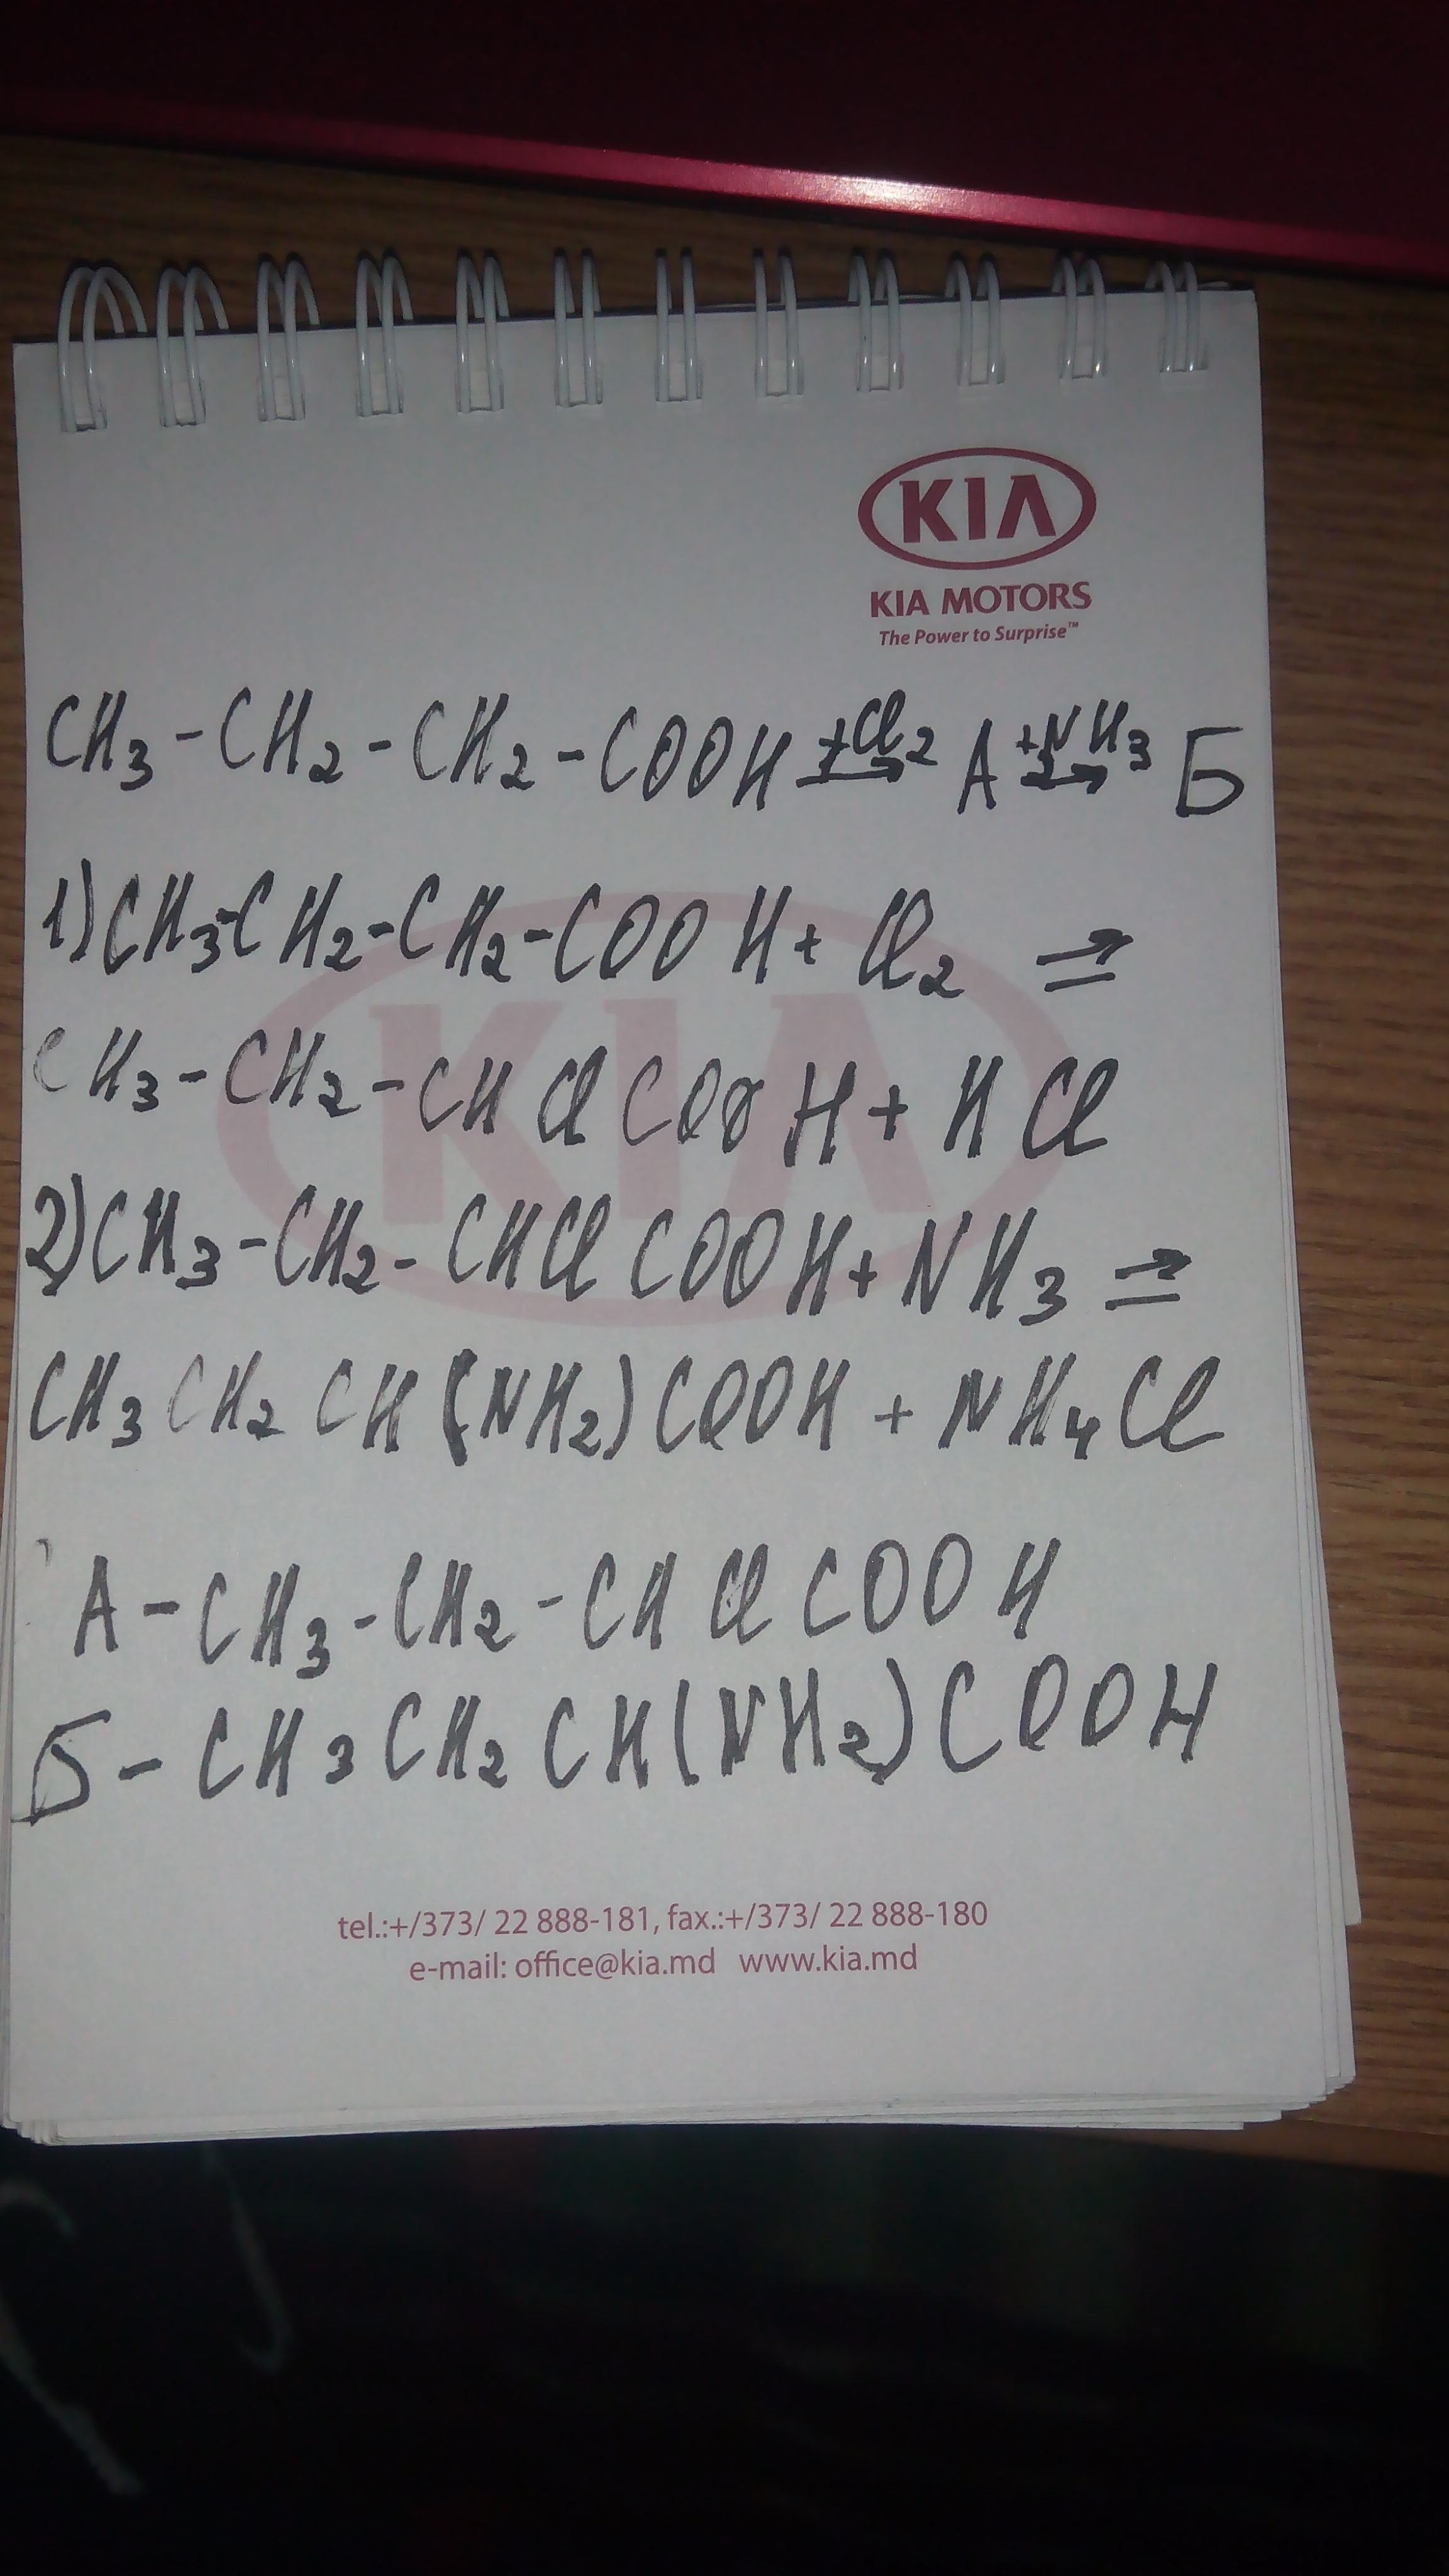 KIA
KIA MOTORS
The Power to Surprise™
CH3-CH2-CH2-COOH +Cl2→ A +NH3→ Б
1)CH3-CH2-CH2-COOH+ Cl2 ⇒
CH3-CH2-CHClCOOH+HCl
2)CH3-CH2-CHClCOOH+NH3 ⇒
CH3CH2CH(NH2)COOH+NH4Cl
A-CH3-CH2-CHClCOOH
Б-CH3CH2CH(NH2)COOH
KIA
tel.:+/373/ 22 888-181, fax.:+/373/ 22 888-180
e-mail: office@kia.md www.kia.md